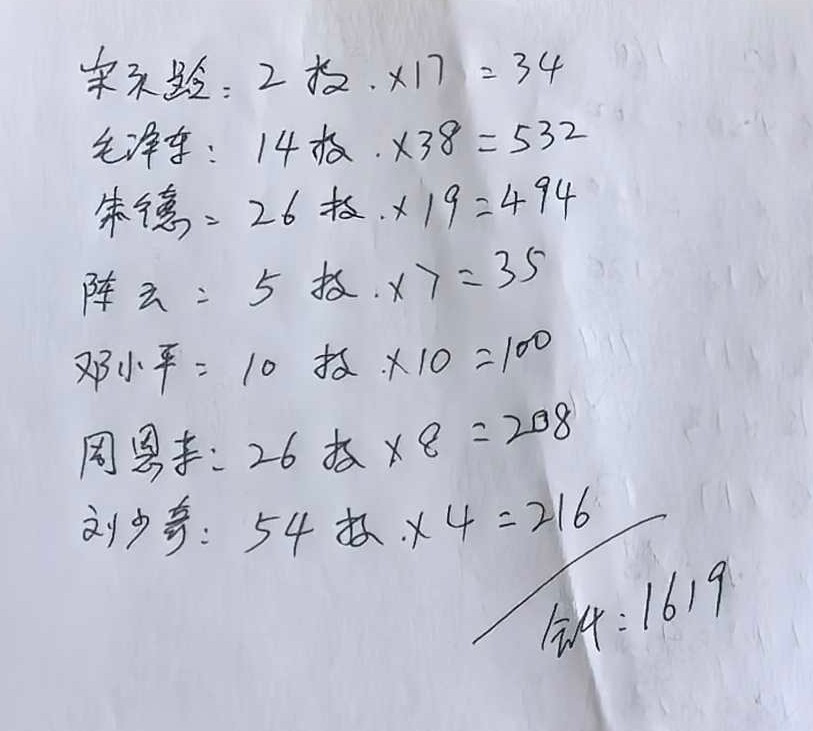 宋庆龄：2枚.×17=34
毛泽东：14枚.×38=532
朱德：26枚.×19=494
陈云：5枚.×7=35
邓小平：10枚.×10=100
周恩来：26枚×8=208
刘少奇：54枚.×4=216
合计：1619